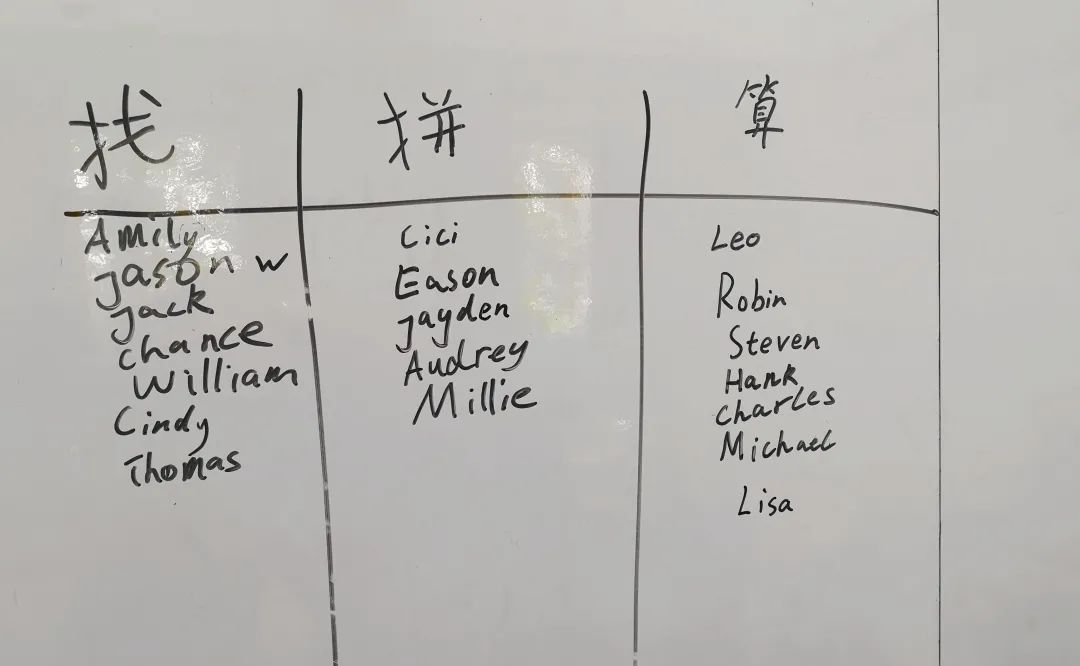 找 拼 算
Amily
Jason W
Jack
Chance
William
Cindy
Thomas
Cici
Eason
Jayden
Audrey
Millie
Leo
Robin
Steven
Hank
Charles
Michael
Lisa